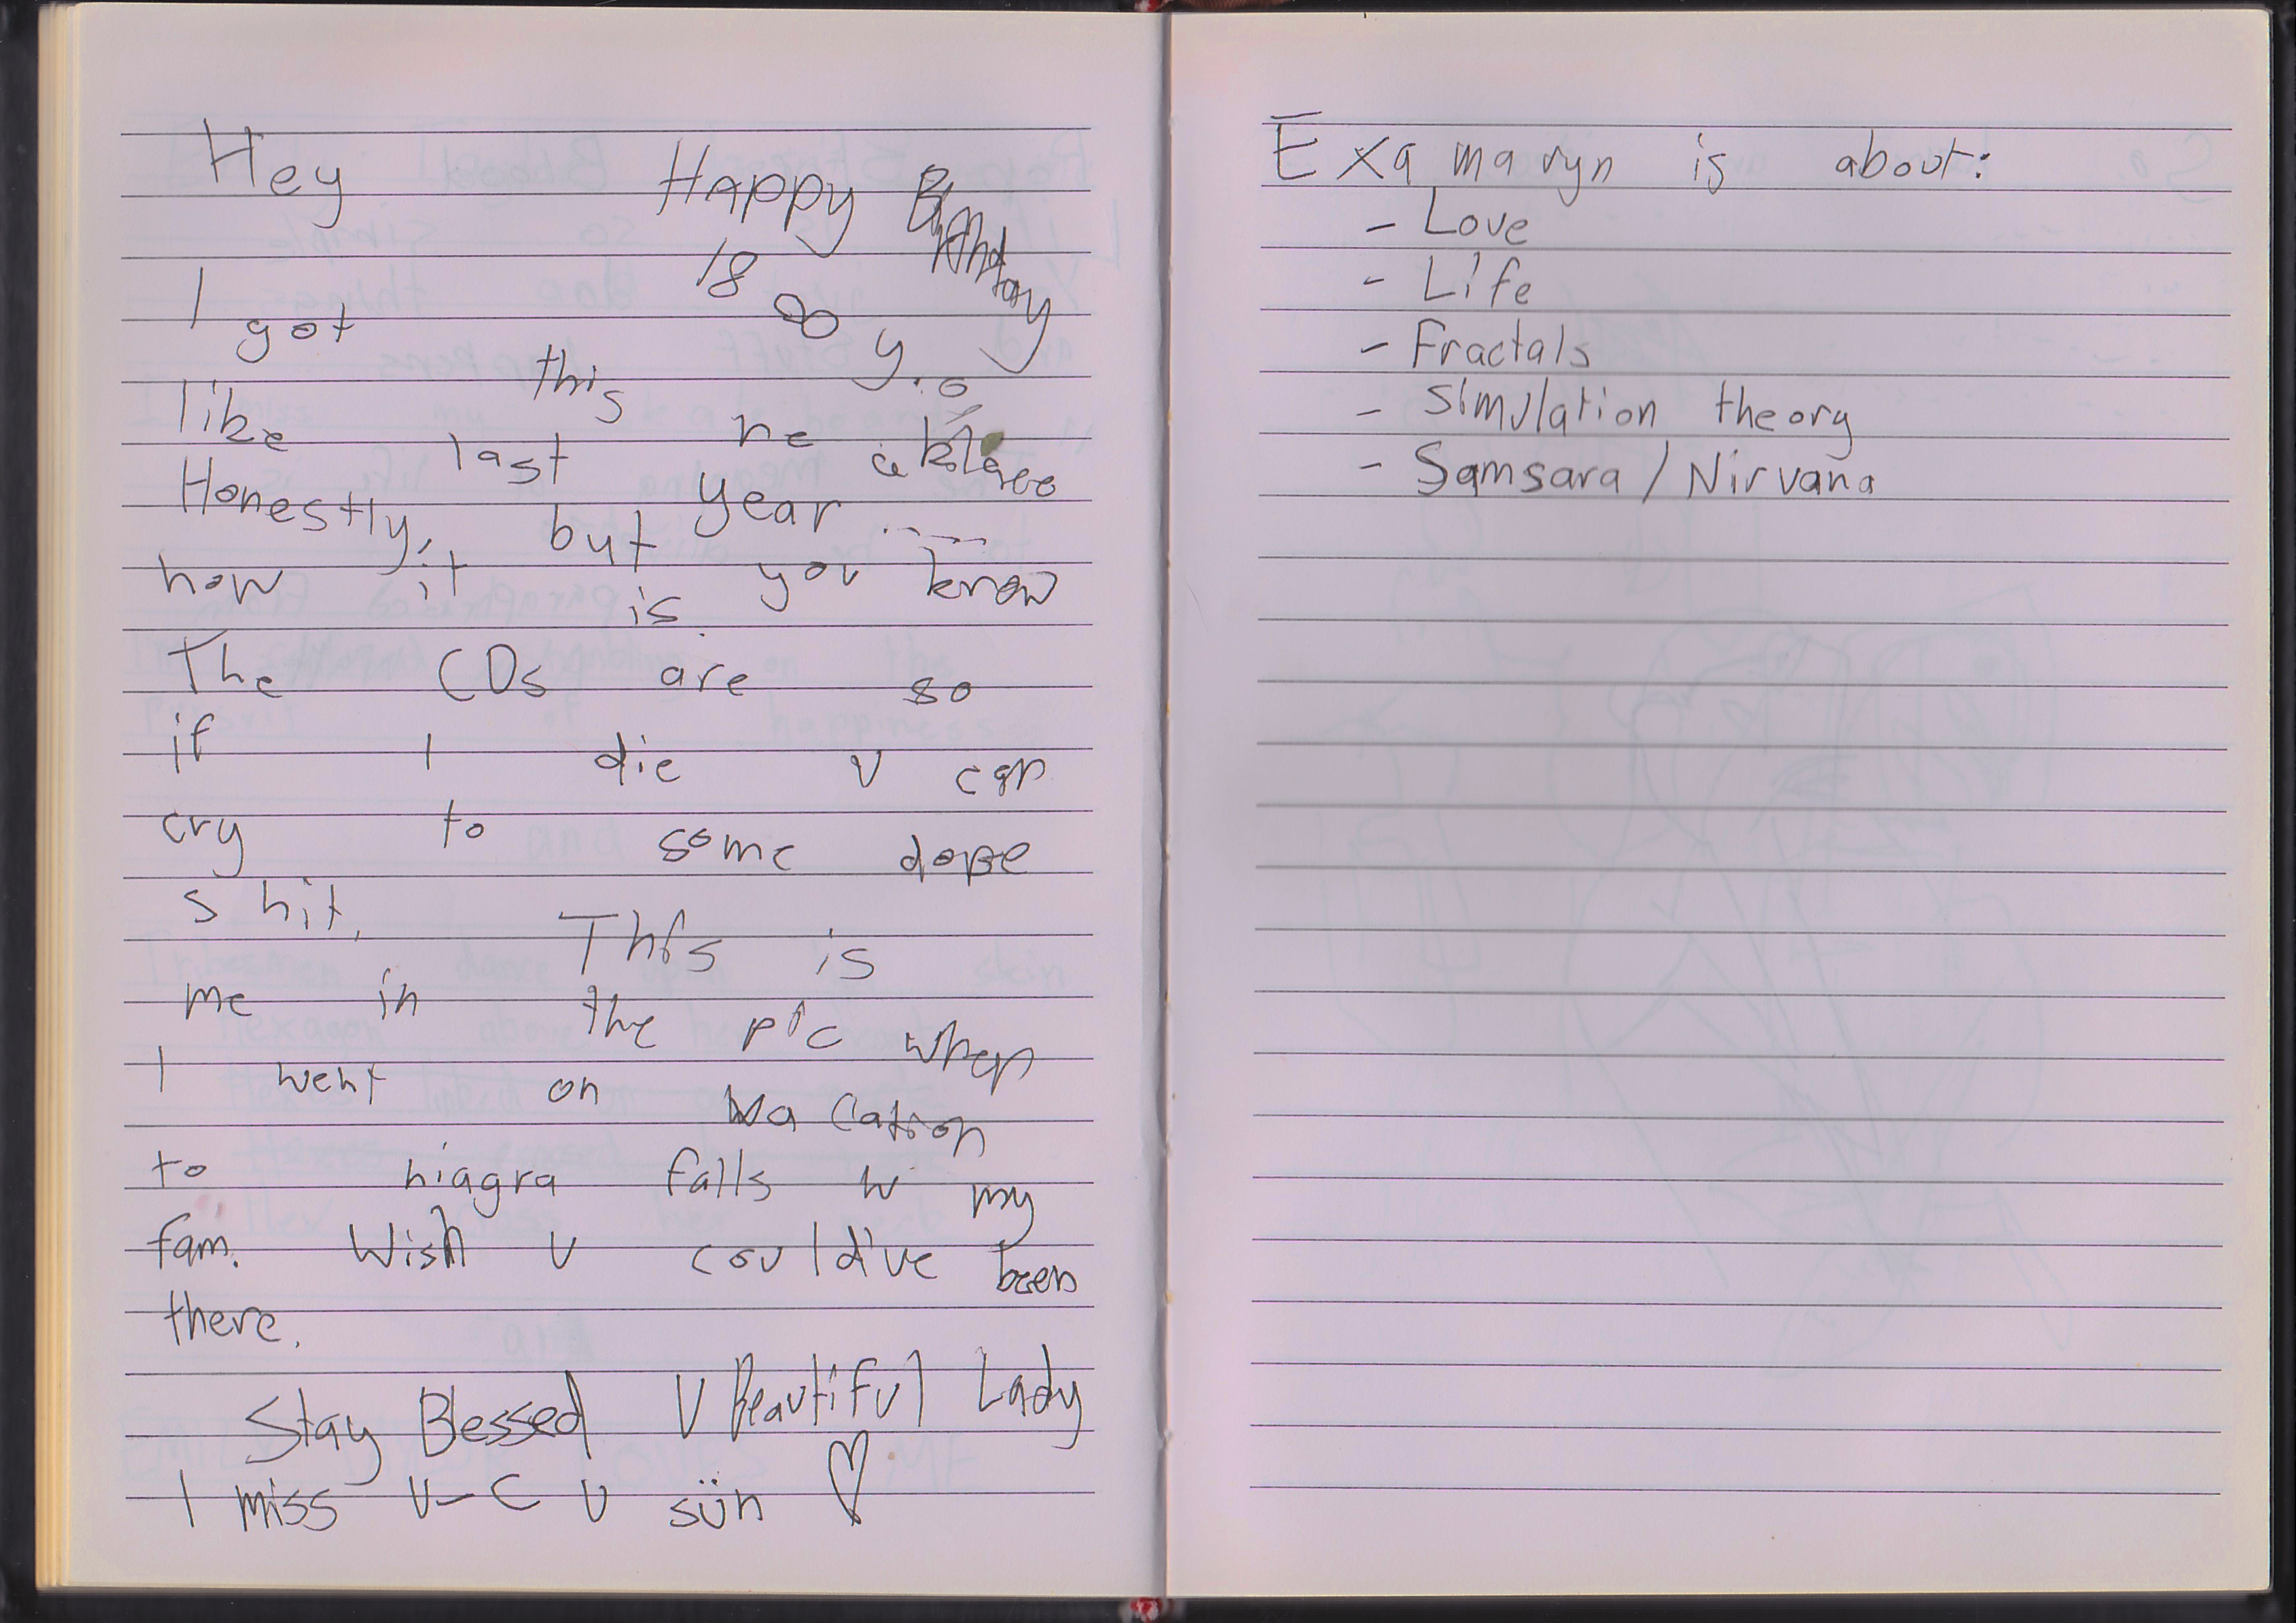 Hey Happy Birthday
18 y.o.
I got this necklace
like last year .....
Honestly, but you know
how it is.
The CDs are so
if I die U can
cry to some dope
shit. This is
me in the pic when
I went on vacation
to niagra falls w my
fam. Wish U could've been
there.
Stay Blessed U Beautiful Lady
I miss U - C U sün ♡
Examaryn is about:
- Love
- Life
- Fractals
- Simulation theory
- Samsara / Nirvana